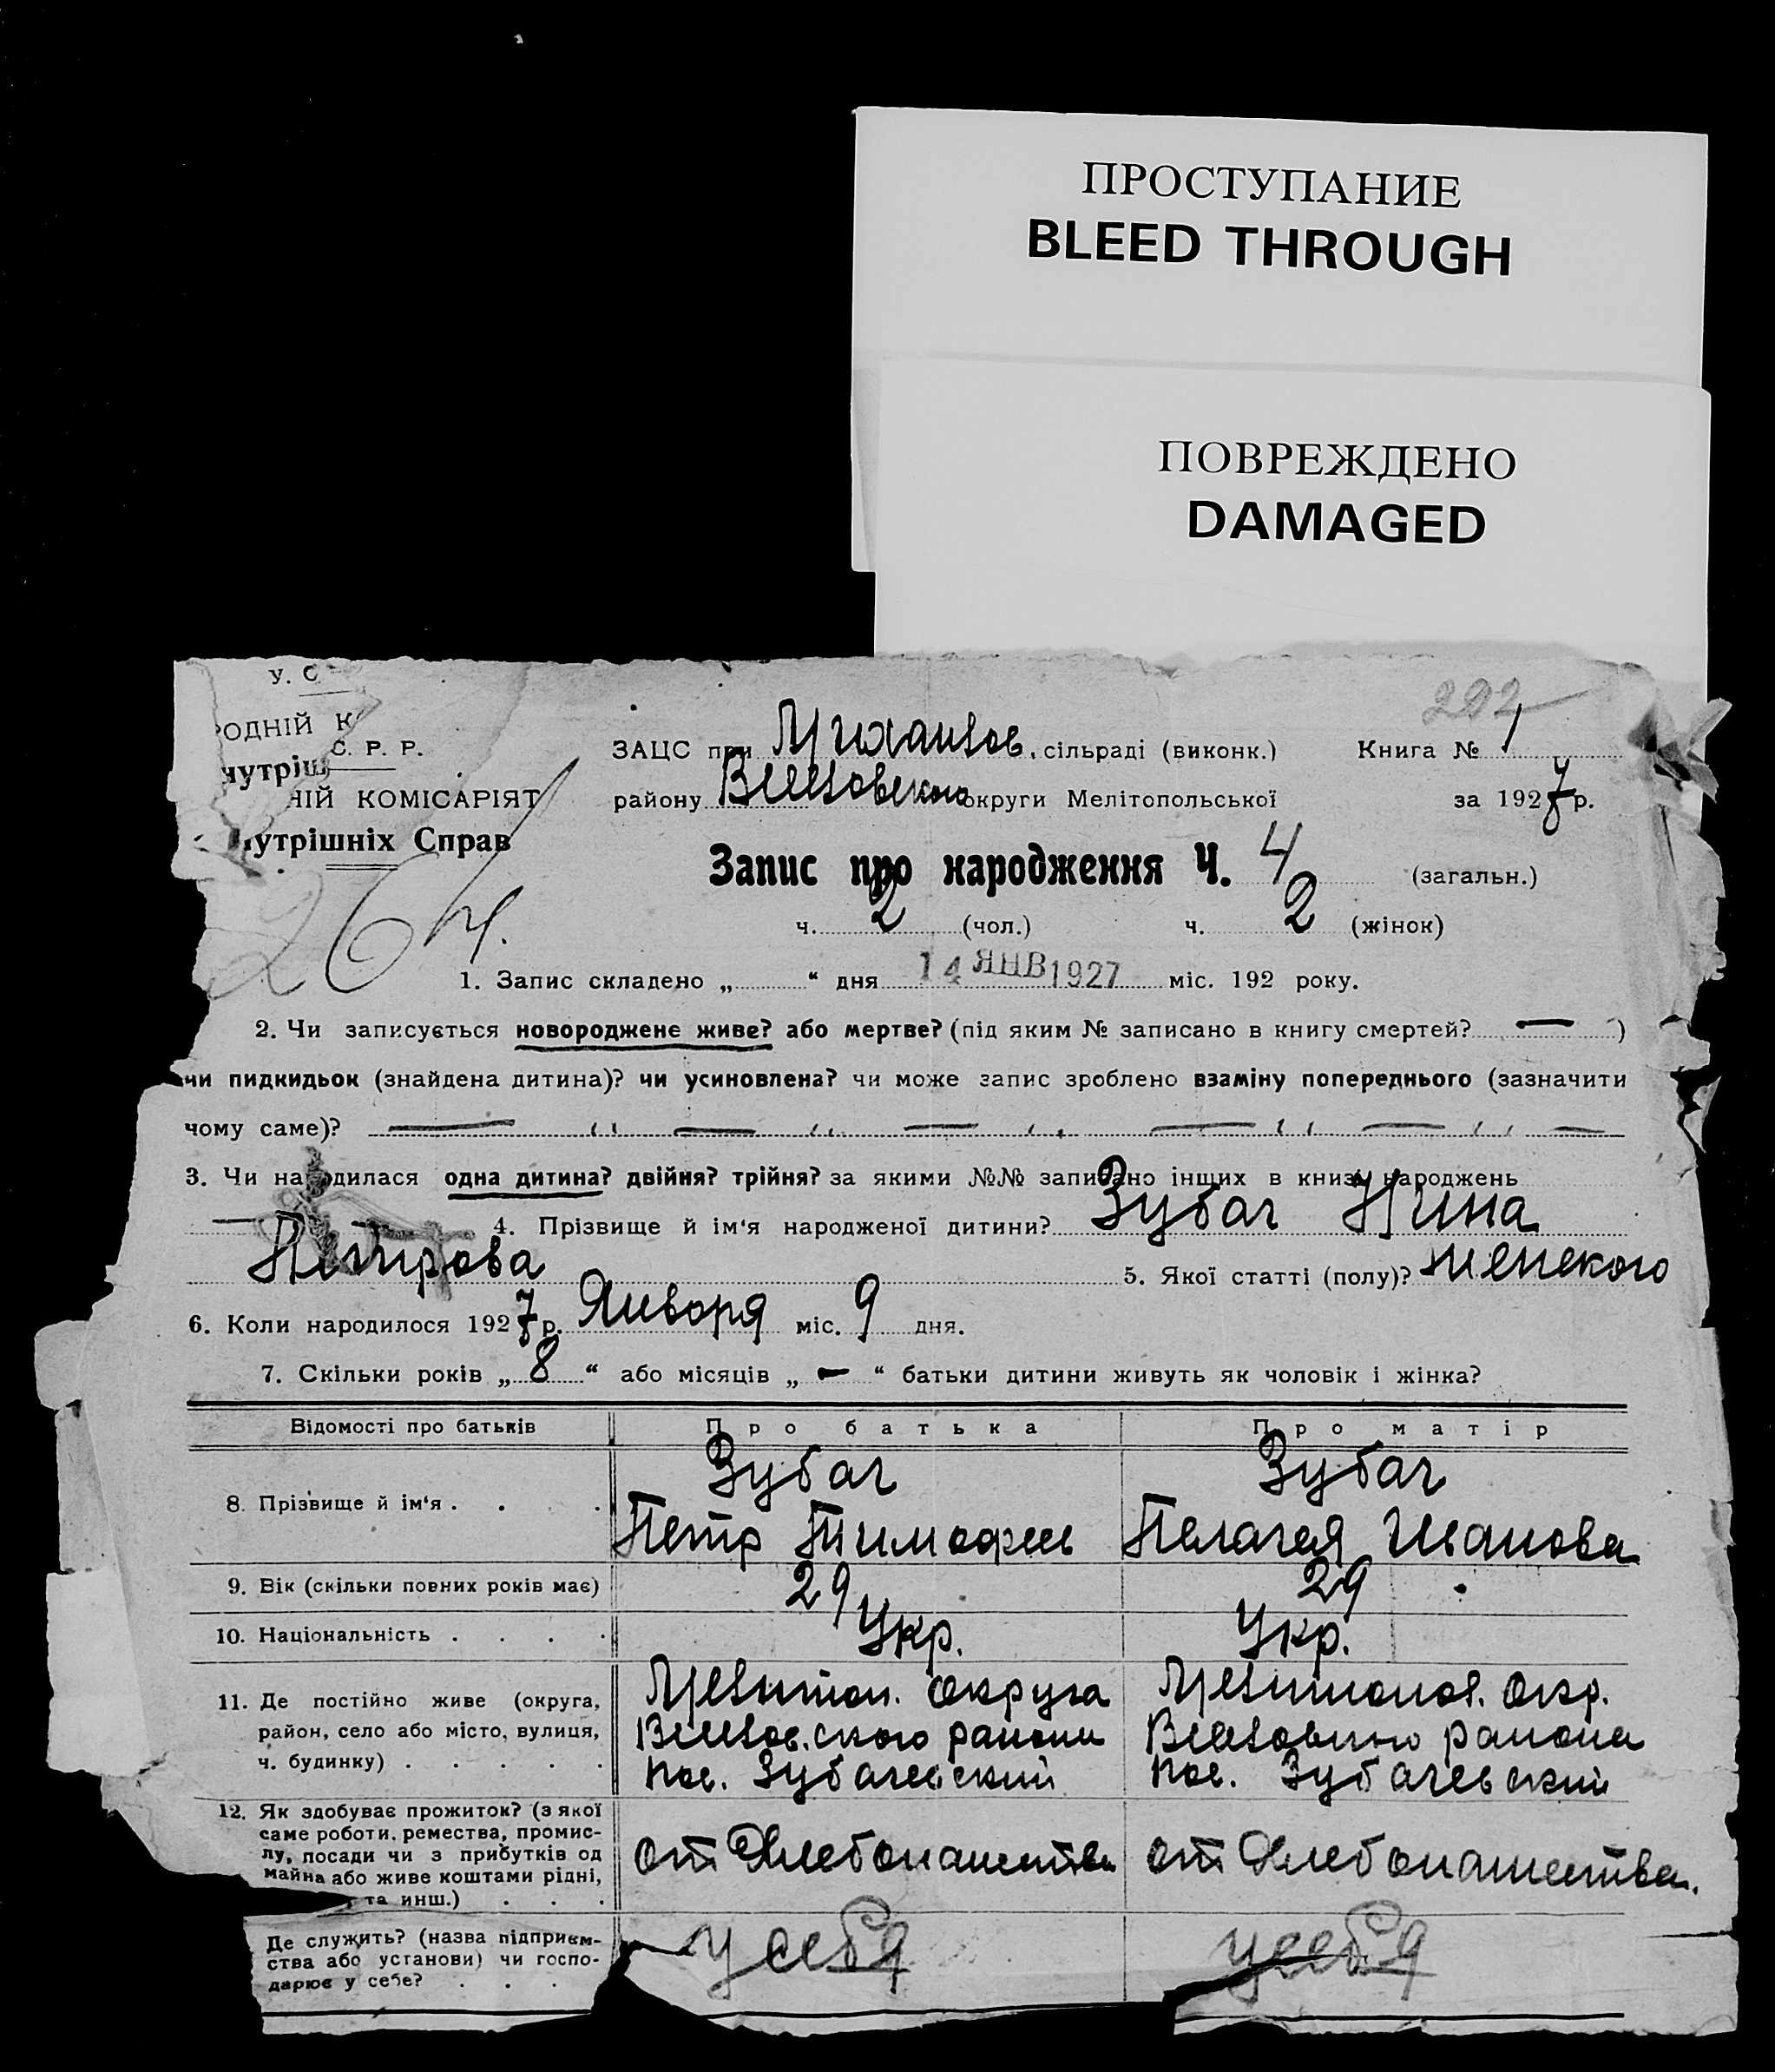 ПРОСТУПАНИЕ
BLEED THROUGH
ПОВРЕЖДЕНО
DAMAGED
292
У. С
РОДНІЙ К
С. Р. Р.
нутріш
НІЙ КОМІСАРІЯТ
нутрішніх Справ
264.
ЗАЦС при Михайлов. сільраді (виконк.) Книга № 1
району Веселовского округи Мелітопольської за 1927 р.
Запис про народження Ч. 4 (загальн.)
ч. 2 (чол.) ч. 2 (жінок)
1. Запис складено „ “ дня 14 ЯНВ 1927 міс. 192 року.
2. Чи записується новороджене живе? або мертве? (під яким № записано в книгу смертей? — )
чи пидкидьок (знайдена дитина)? чи усиновлена? чи може запис зроблено взаміну попереднього (зазначити
чому саме)? — ׳׳ — ׳׳ — ׳׳ — ׳׳ — ׳׳ —
3. Чи народилася одна дитина? двійня? трійня? за якими №№ записано інших в книзі народжень
— 4. Прізвище й ім‘я народженої дитини? Зубач Нина
Петрова 5. Якої статті (полу)? женского
6. Коли народилося 1927 р. Января міс. 9 дня.
7. Скільки років „ 8 “ або місяців „ — “ батьки дитини живуть як чоловік і жінка?
Відомості про батьків Про батька Про матір
8. Прізвище й ім‘я . . . Зубач Зубач
Петр Тимофеев Пелагея Иванова
9. Вік (скільки повних років має) 29 29
10. Національність . . . . Укр. Укр.
11. Де постійно живе (округа, Мелитоп. округа Мелитопол. окр.
район, село або місто, вулиця, Веселов.ского района Веселовского района
ч. будинку) . . . . . пос. Зубачевский пос. Зубачевский
12. Як здобуває прожиток? (з якої
саме роботи, ремества, промис-
лу, посади чи з прибутків од от Хлебопашества от Хлебопашества.
майна або живе коштами рідні,
та инш.) . . .
Де служить? (назва підприєм-
ства або установи) чи госпо- у себя у себя
дарює у себе? . . .